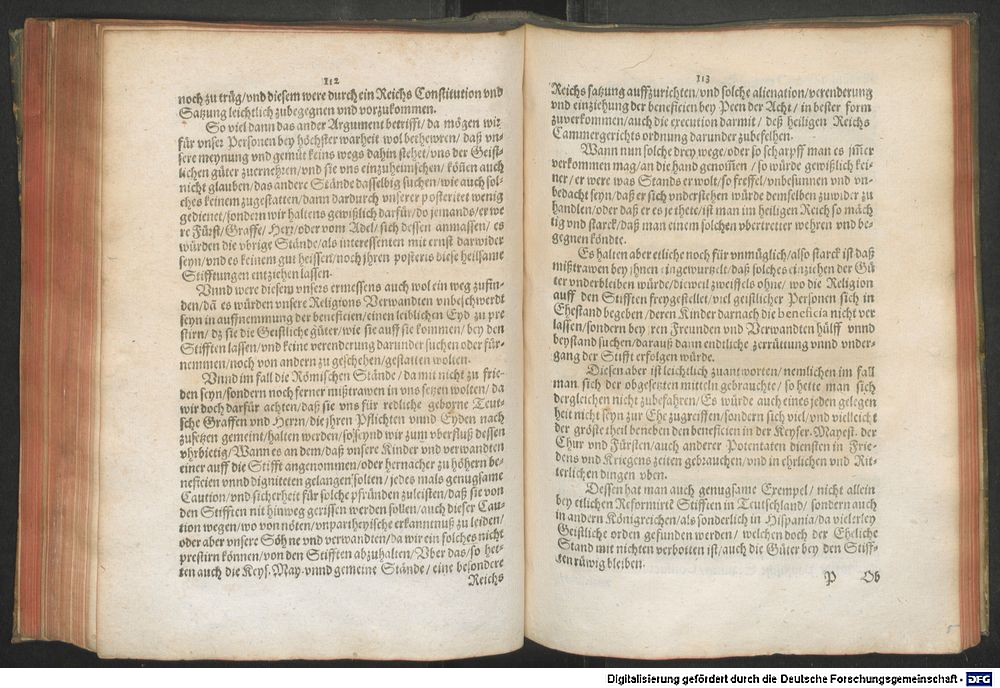 112
noch zu trüg/vnd diesem were durch ein Reichs Constitution vnd
Satzung leichtlich zubegegnen vnd vorzukommen.
So viel dann das ander Argument betrifft/da mögen wir
für vnser Personen bey höchster warheit wol bethewren/ daß vn-
sere meynung vnd gemüt keins wegs dahin stehet/vns der Geist-
lichen güter zuernehen/vnd sie vns einzuheimschen/ köñen auch
nicht glauben/das andere Stände dasselbig suchen/wie auch sol-
ches keinem zugestatten/dann dardurch vnserer posteritet wenig
gedienet/sondern wir haltens gewißlich darfür/do jemands/er we
re Fürst/Graffe/Herr/oder vom Adel/sich dessen anmassen/ es
würden die vbrige Stände/als interessenten mit ernst darwider
seyn/vnd es keinem gut heissen/noch jhren posteris diese heilsame
Stifftungen entziehen lassen.
Vnnd were diesem vnsers ermessens auch wol ein weg zufin-
den/dañ es würden vnsere Religions Verwandten vnbeschwerdt
seyn in auffnemmung der beneficien/einen leiblichen Eyd zu pre
stirn/dz sie die Geistliche güter/wie sie auff sie kommen/bey den
Stifften lassen/vnd keine verenderung darunder suchen oder für-
nemmen/noch von andern zu geschehen/gestatten wolten.
Vnnd im fall die Römischen Stände/da mit nicht zu frie-
den seyn/sondern noch ferner mißtrawen in vns setzen wolten/da
wir doch darfür achten/daß sie vns für redliche geborne Teut-
sche Graffen vnd Herrn/die jhren Pflichten vnnd Eyden nach
zusetzen gemeint/halten werden/so seynd wir zum vberfluß dessen
vhrbietig/Wann es an dem/daß vnsere Kinder vnd verwandten
einer auff die Stifft angenommen/oder hernacher zu höhern be-
neficien vnnd digniteten gelangen solten/jedes mals genugsame
Caution/vnd sicherheit für solche pfründen zuleisten/daß sie von
den Stifften nit hinweg gerissen werden sollen/auch dieser Cau-
tion wegen/wo von nöten/vnpartheyische erkanntnuß zu leiden/
oder aber vnsere Söhne vnd verwandten/da wir ein solches nicht
prestirn können/von den Stifften abzuhalten/Vber das/so het-
ten auch die Keys. May. vnnd gemeine Stände/eine besondere
Reichs
113
Reichs satzung auffzurichten/vnd solche alienation/verenderung
vnd einziehung der beneficien bey Peen der Acht/ in bester form
zuverkommen/auch die execution darmit/ deß heiligen Reichs
Cammergerichts ordnung darunder zubefelhen.
Wann nun solche drey wege/oder so scharpff man es im̃er
verkommen mag/an die hand genom̃en/so würde gewißlich kei-
ner/er were was Stands er wolt/so freffel/vnbesunnen vnd vn-
bedacht seyn/daß er sich vnderstehen würde demselben zuwider zu
handlen/oder daß er es je thete/ist man im heiligen Reich so mäch
tig vnd starck/daß man einem solchen vbertretter wehren vnd be-
gegnen köndte.
Es halten aber etliche noch für vnmüglich/also starck ist daß
mißtrawen bey jhnen eingewurtzelt/daß solches einziehen der Gü
ter vnderbleiben würde/dieweil zweiffels ohne/ wo die Religion
auff den Stifften freygestellet/viel geistlicher Personen sich in
Ehestand begeben/deren Kinder darnach die beneficia nicht ver
lassen/sondern bey jren Freunden vnd Verwandten hülff vnnd
beystand suchen/darauß dann endtliche zerrüttung vnnd vnder-
gang der Stifft erfolgen würde.
Diesen aber ist leichtlich zuantworten/nemlichen im fall
man sich der obgesetzten mitteln gebrauchte/so hette man sich
dergleichen nicht zubefahren/Es würde auch eines jeden gelegen
heit nicht seyn zur Ehe zugreiffen/sondern sich viel/vnd vielleicht
der gröste theil beneben den beneficien in der Keyser. Mayest. der
Chur vnd Fürsten/auch anderer Potentaten diensten in Frie-
dens vnd Kriegens zeiten gebrauchen/vnd in ehrlichen vnd Rit-
terlichen dingen vben.
Dessen hat man auch genugsame Exempel/ nicht allein
bey etlichen Reformirte Stifften in Teutschland/ sondern auch
in andern Königreichen/als sonderlich in Hispania/da vielerley
Geistliche orden gefunden werden/ welchen doch der Eheliche
Stand mit nichten verbotten ist/auch die Güter bey den Stiff-
ten rüwig bleiben.
P Ob
Digitalisierung gefördert durch die Deutsche Forschungsgemeinschaft - DFG